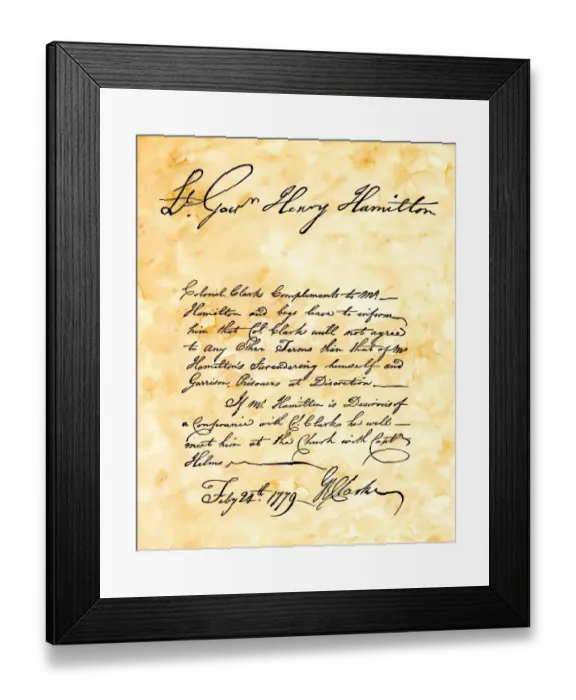 Lt. Govrn Henry Hamilton
Colonel Clarks Compliments to Mr.
Hamilton and begs leave to inform
him that Col. Clark will not agree
to any Other Terms than that of Mr
Hamilton's Surendering himself and
Garrison, Prisoners at Discretion.
If Mr. Hamilton is Desironis of
a Conferance with Cl. Clarks he will
meet him at the Church with Captn
Helms
Feby 24th. 1779 GRClark